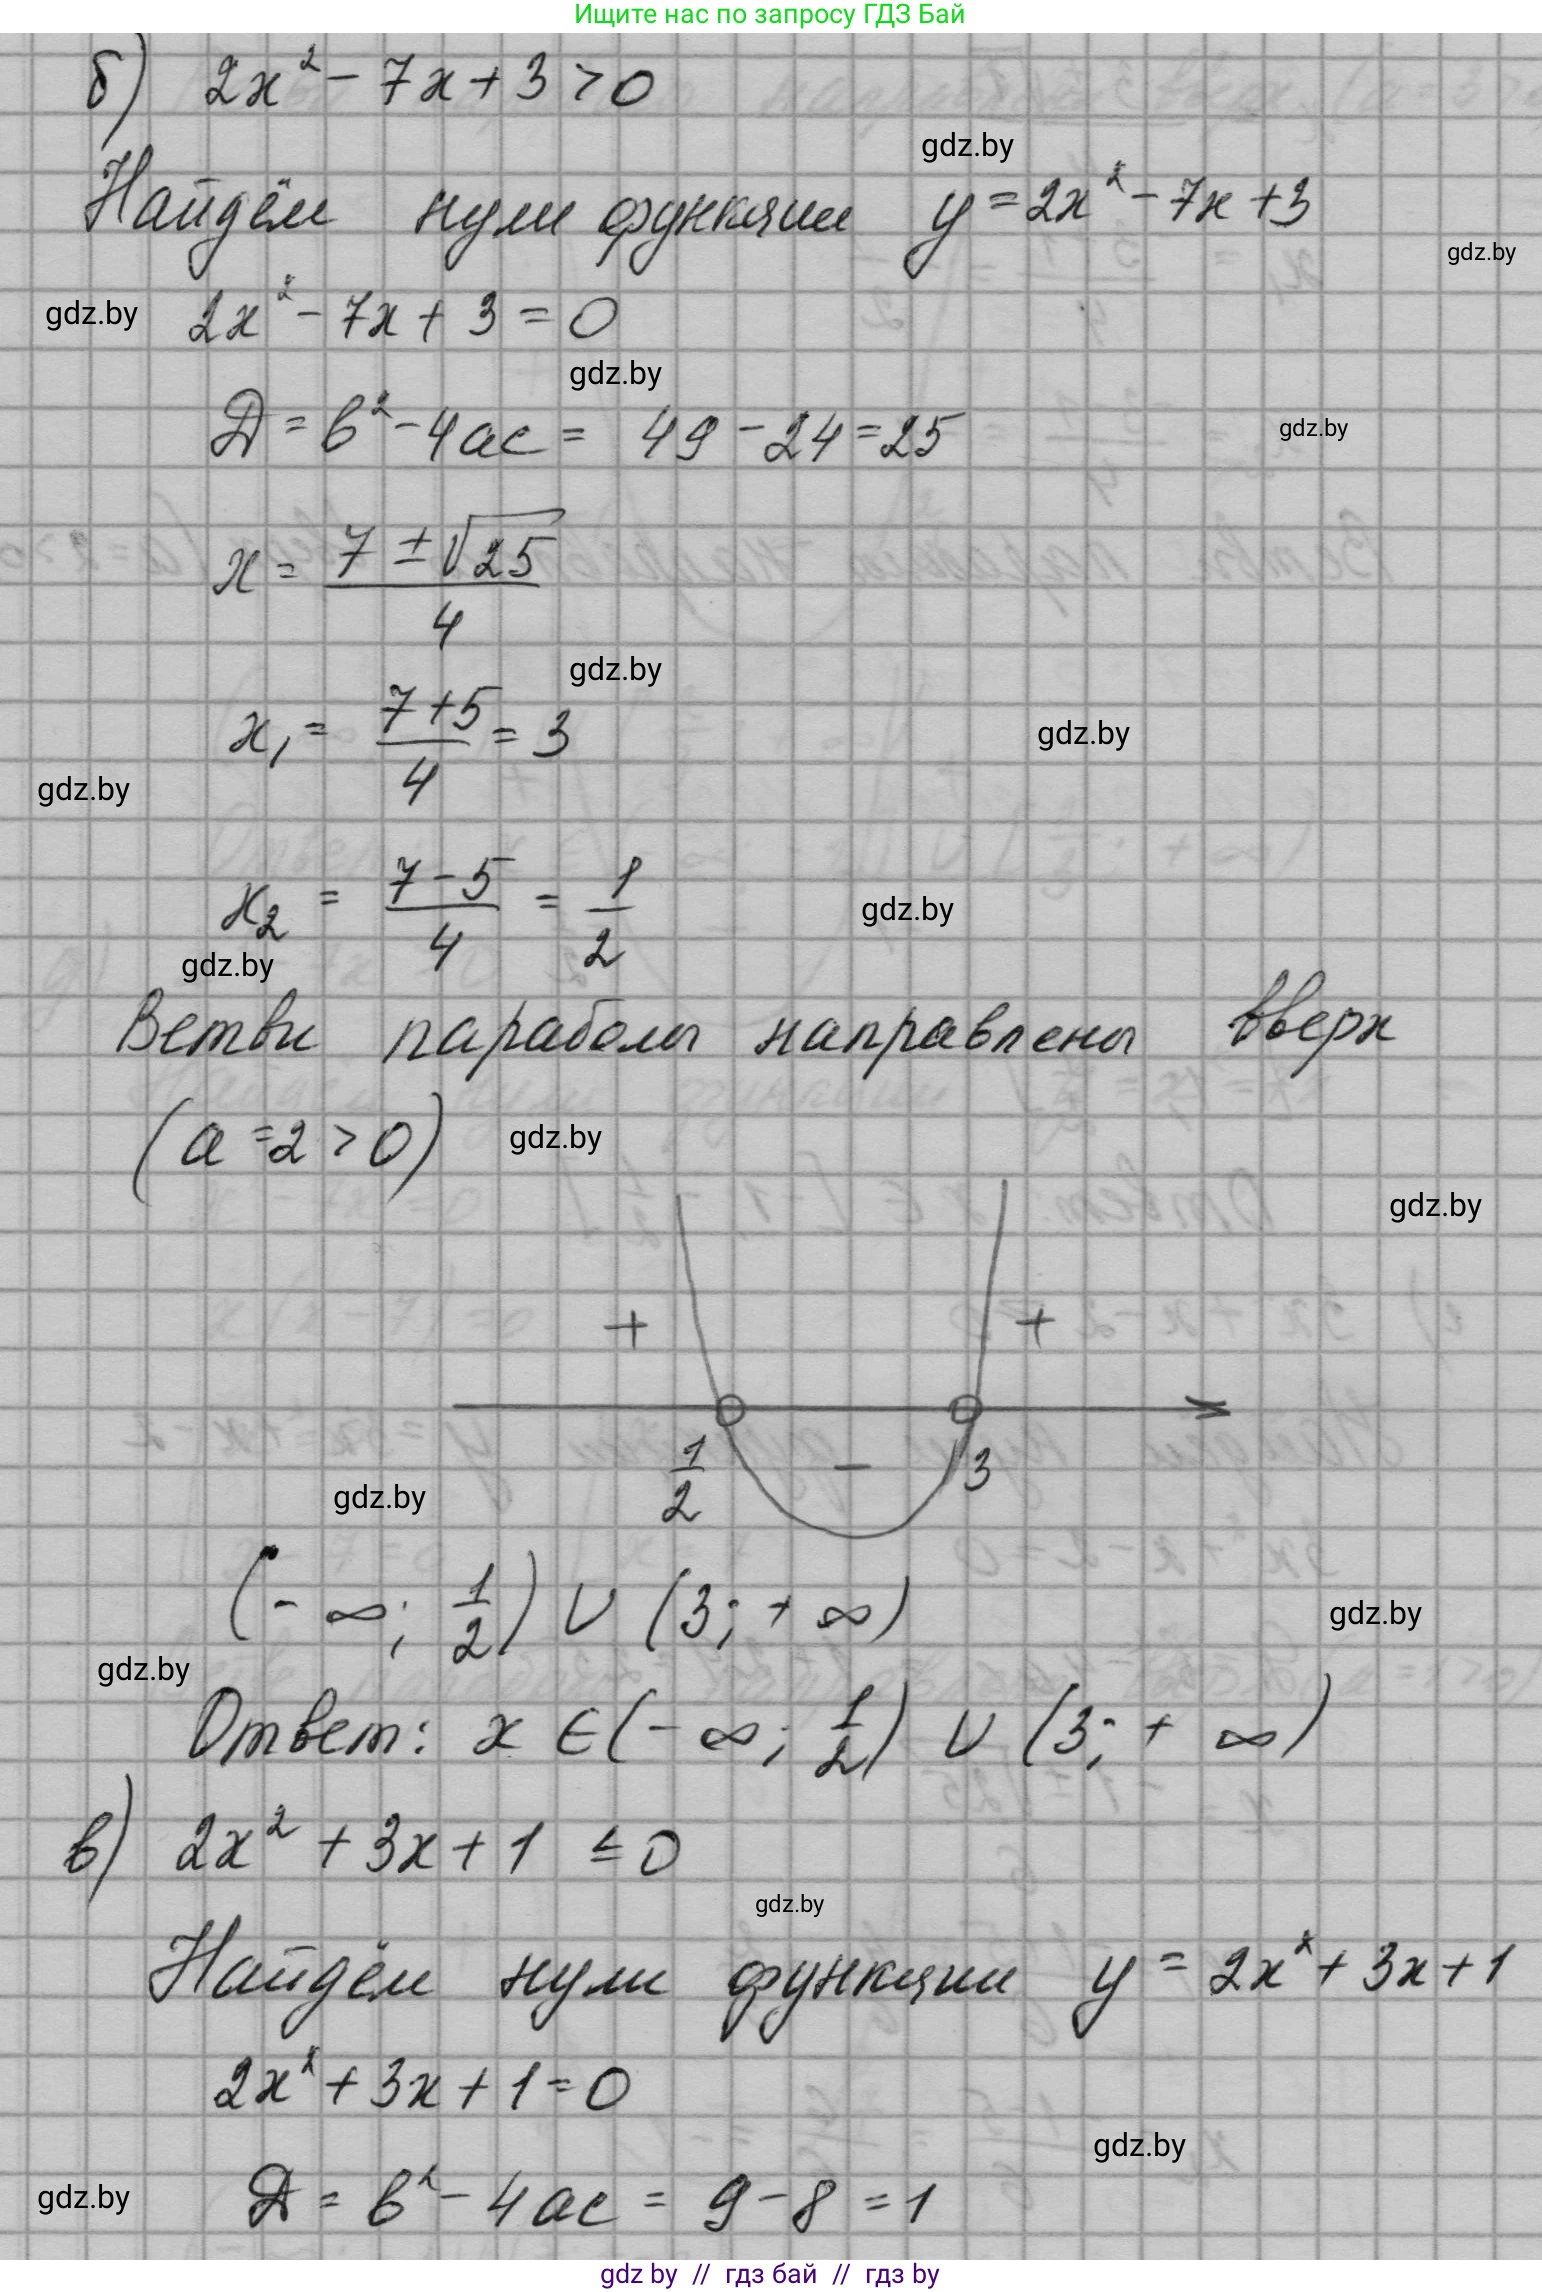 Ищите нас по запросу ГДЗ Бай
б) 2x² - 7x + 3 > 0
gdz.by
Найдём нули функции y = 2x² - 7x + 3
gdz.by
gdz.by
2x² - 7x + 3 = 0
gdz.by
Д = b² - 4ac = 49 - 24 = 25
gdz.by
x = (7 ± √25)/4
gdz.by
x₁ = (7 + 5)/4 = 3
gdz.by
gdz.by
x₂ = (7 - 5)/4 = 1/2
gdz.by
gdz.by
Ветви параболы направлены вверх
(a = 2 > 0)
gdz.by
gdz.by
+ +
1/2 - 3
gdz.by
(-∞; 1/2) ∪ (3; +∞)
gdz.by
gdz.by
Ответ: x ∈ (-∞; 1/2) ∪ (3; +∞)
в) 2x² + 3x + 1 ≤ 0
gdz.by
Найдём нули функции y = 2x² + 3x + 1
2x² + 3x + 1 = 0
gdz.by
gdz.by
Д = b² - 4ac = 9 - 8 = 1
gdz by // гдз бай // гдз by